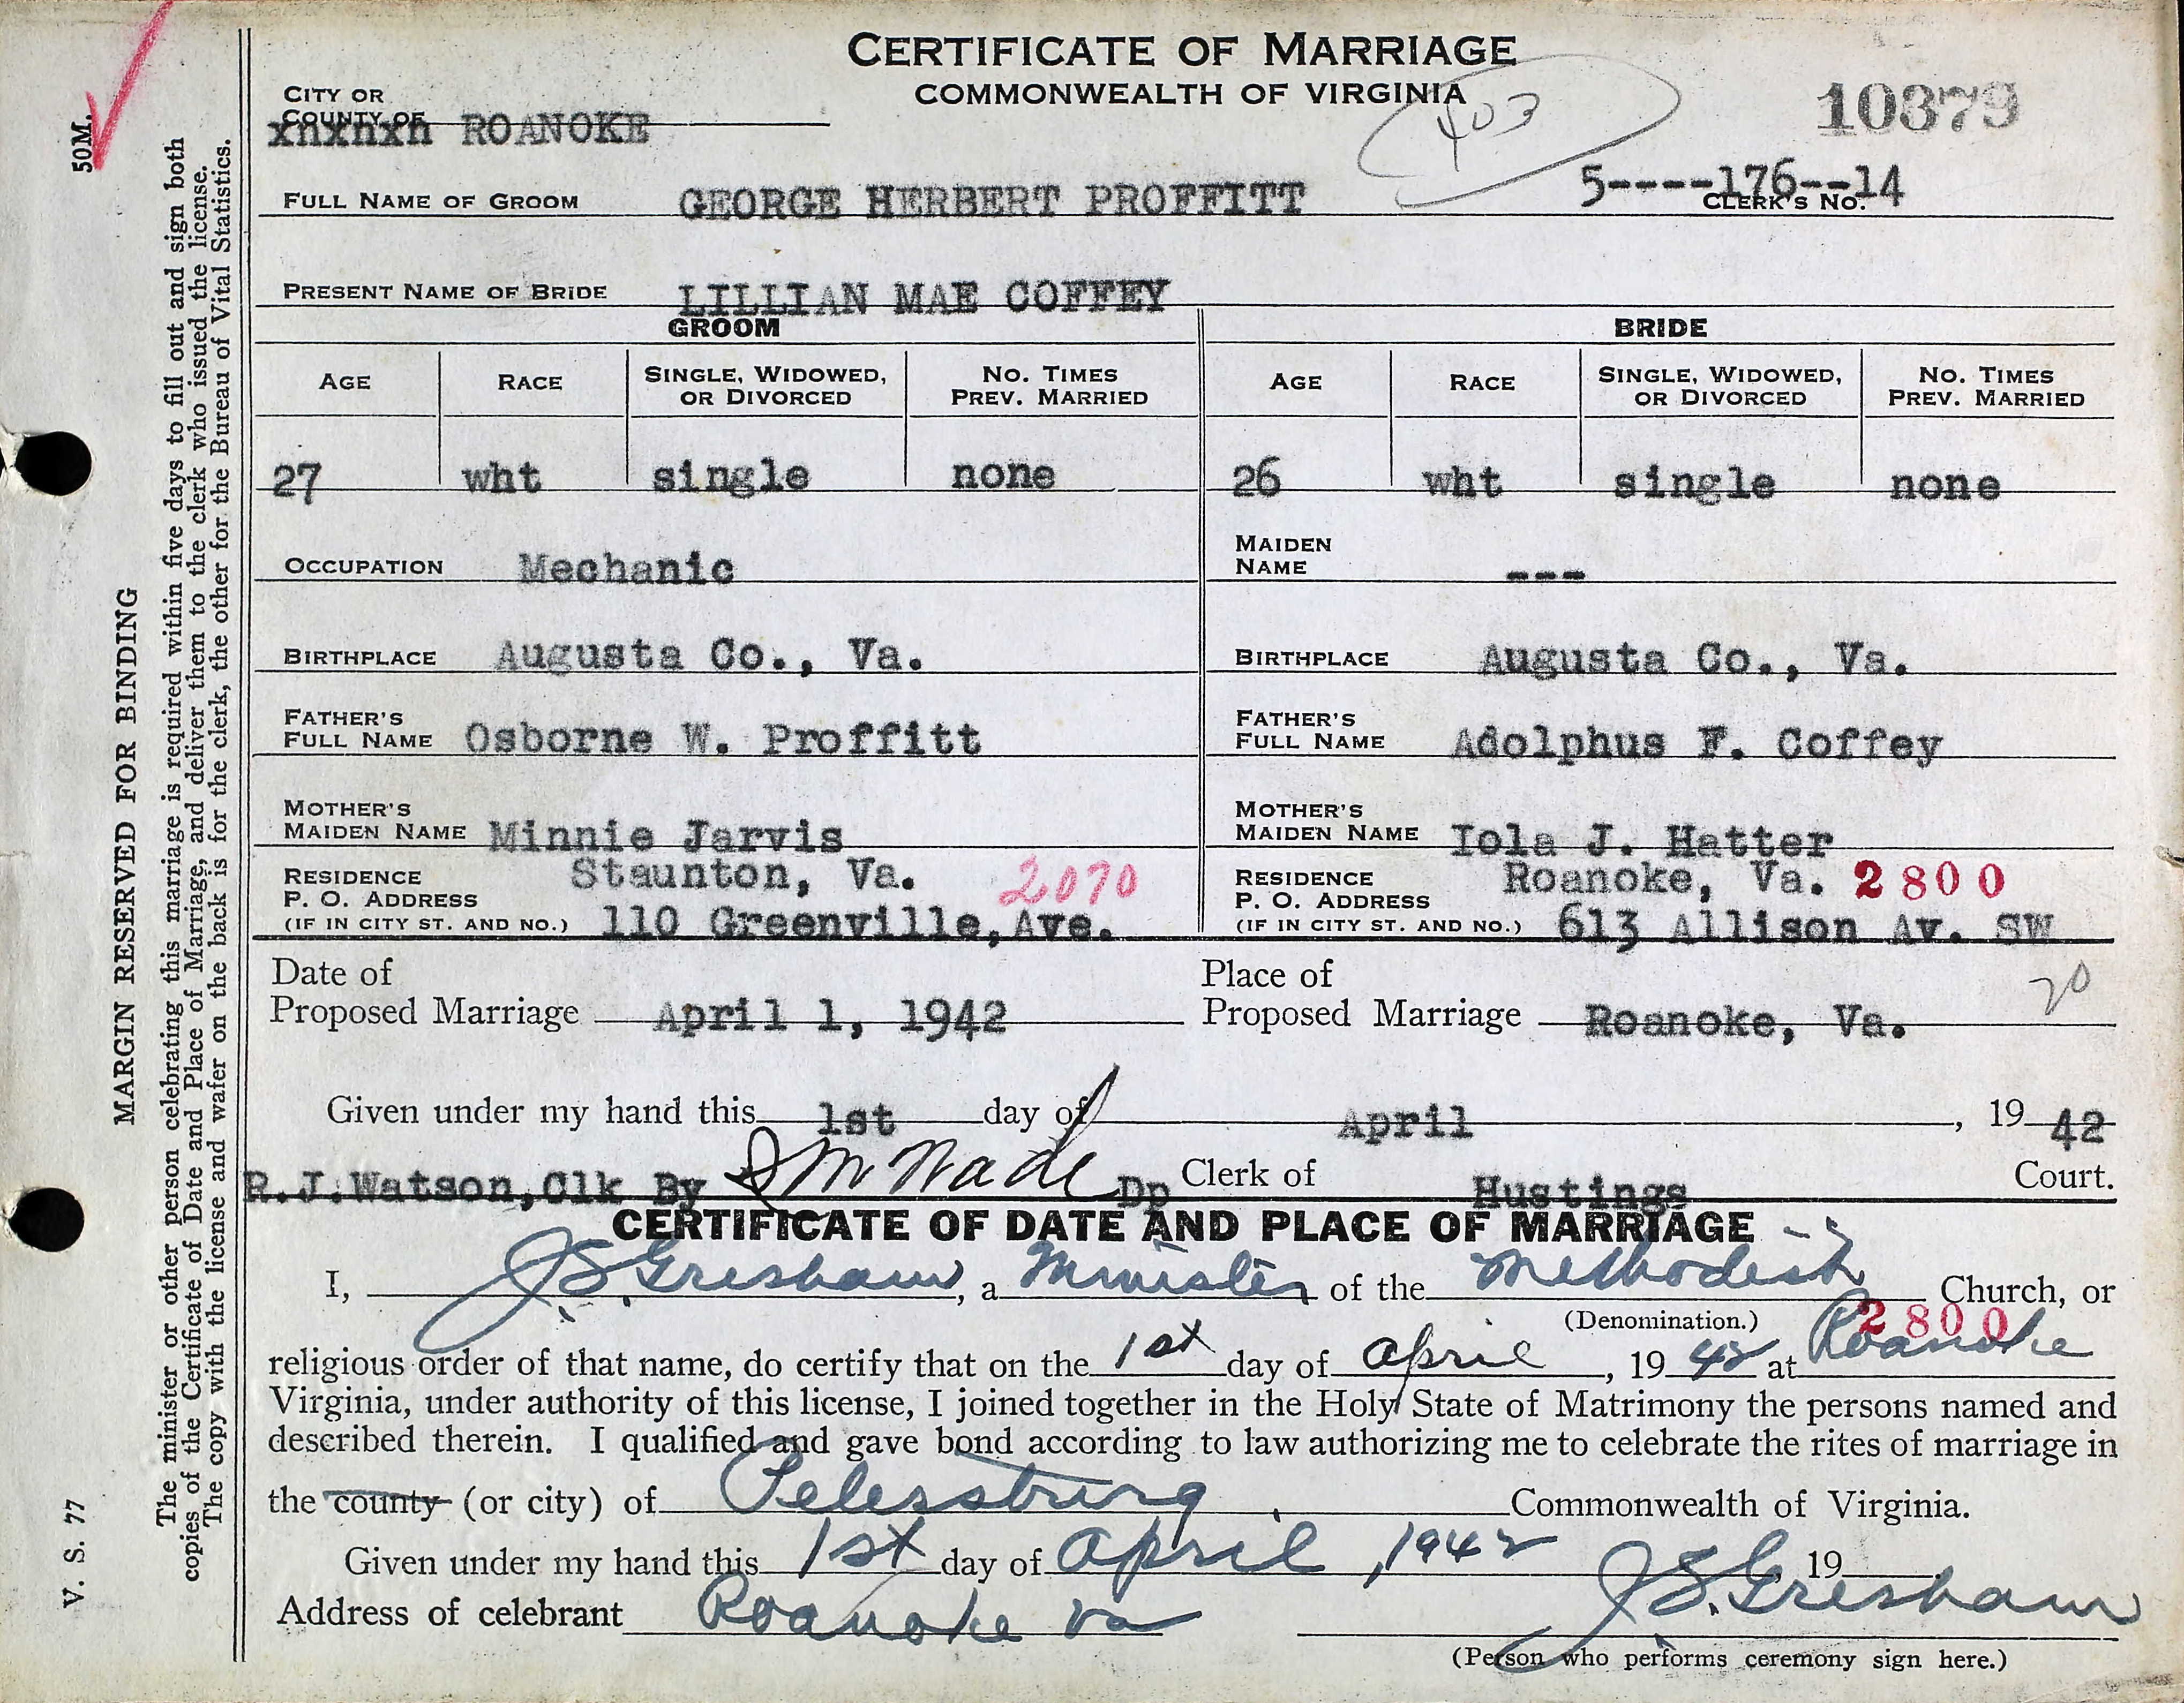 CERTIFICATE OF MARRIAGE
COMMONWEALTH OF VIRGINIA
403
10379
CITY OR
COUNTY OF
xnxnxn ROANOKE
5----176--14
CLERK'S NO.
FULL NAME OF GROOM GEORGE HERBERT PROFFITT
PRESENT NAME OF BRIDE LILLIAN MAE COFFEY
GROOM BRIDE
AGE RACE SINGLE, WIDOWED, OR DIVORCED NO. TIMES PREV. MARRIED AGE RACE SINGLE, WIDOWED, OR DIVORCED NO. TIMES PREV. MARRIED
27 wht single none 26 wht single none
OCCUPATION Mechanic MAIDEN NAME ---
BIRTHPLACE Augusta Co., Va. BIRTHPLACE Augusta Co., Va.
FATHER'S FULL NAME Osborne W. Proffitt FATHER'S FULL NAME Adolphus F. Coffey
MOTHER'S MAIDEN NAME Minnie Jarvis MOTHER'S MAIDEN NAME Iola J. Hatter
RESIDENCE Staunton, Va. 2070 RESIDENCE Roanoke, Va. 2800
P. O. ADDRESS P. O. ADDRESS
(IF IN CITY ST. AND NO.) 110 Greenville, Ave. (IF IN CITY ST. AND NO.) 613 Allison Av. SW
Date of Place of 20
Proposed Marriage April 1, 1942 Proposed Marriage Roanoke, Va.
Given under my hand this 1st day of April, 19 42
R.J.Watson,Clk By Wade Dp Clerk of Hustings Court.
CERTIFICATE OF DATE AND PLACE OF MARRIAGE
I, J.S. Gresham, a Minister of the Methodist Church, or
(Denomination.) 2800
religious order of that name, do certify that on the 1st day of April, 19 42 at Roanoke
Virginia, under authority of this license, I joined together in the Holy State of Matrimony the persons named and
described therein. I qualified and gave bond according to law authorizing me to celebrate the rites of marriage in
the county (or city) of Petersburg, Commonwealth of Virginia.
Given under my hand this 1st day of April, 1942, 19
Address of celebrant Roanoke Va J.S. Gresham
(Person who performs ceremony sign here.)
50M.
MARGIN RESERVED FOR BINDING
V. S. 77
The minister or other person celebrating this marriage is required within five days to fill out and sign both
copies of the Certificate of Date and Place of Marriage, and deliver them to the clerk who issued the license.
The copy with the license and wafer on the back is for the clerk, the other for the Bureau of Vital Statistics.